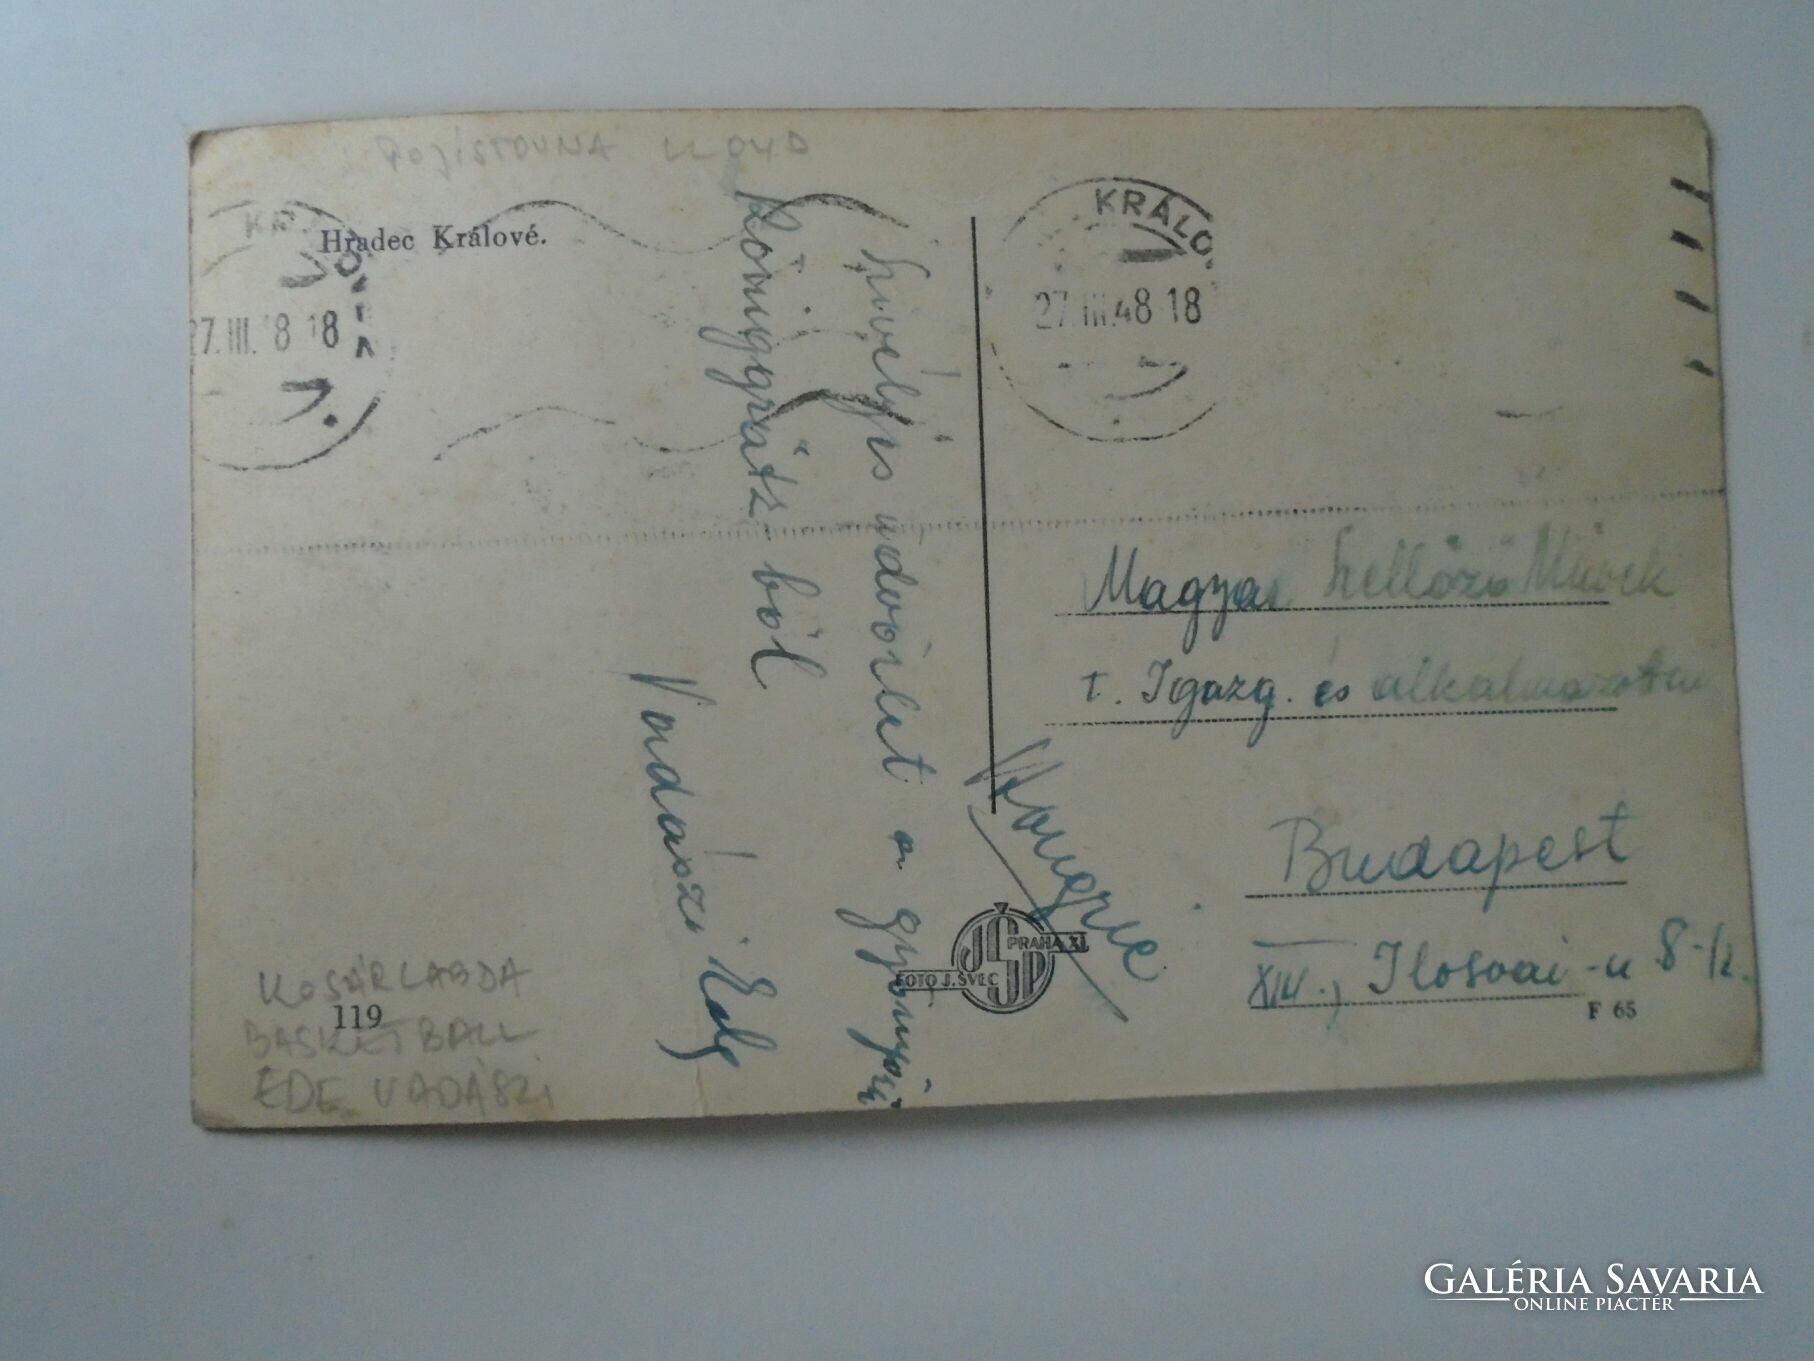 POJISTOVNA LLOYD
Hradec Králové.
27.III. 8 18
KRÁLO
27.III.48-18
Szivélyes üdvözlet a gyönyörű
Königgrätz ből
Vadászi Ede
Magyar Szellőző Művek
t. Igazg. és alkalmazottai
Budapest
XIV., Ilosvai-u 8-12.
Hongrie
JŠP
PRAHA XI.
FOTO J. ŠVEC
F 65
KOSÁRLABDA
119
BASKETBALL
EDE VADÁSZI
GALÉRIA SAVARIA
ONLINE PIACTÉR